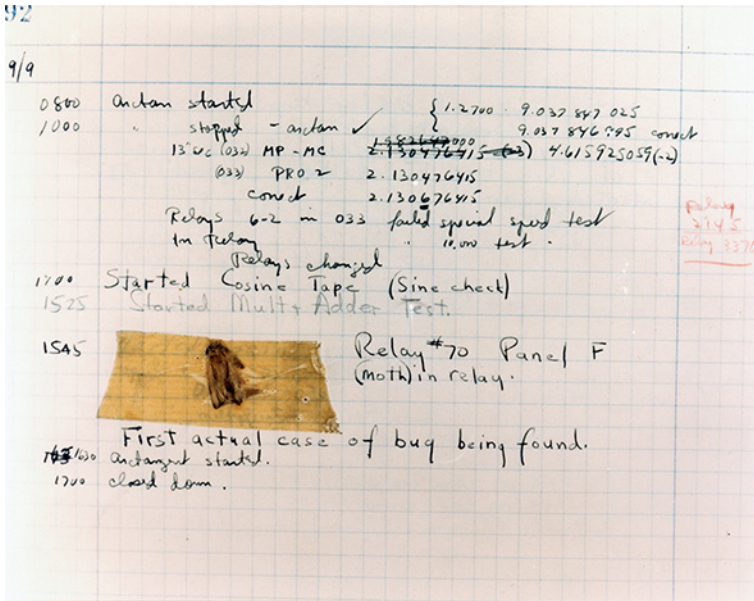 92
9/9
0800 Antan started
1000 " stopped - antan ✓ { 1.2700 9.037 847 025
9.037 846 995 correct
13"uc (032) MP - MC 2.130476415 (-3) 4.615925059(-2)
(033) PRO 2 2.130476415
correct 2.130676415
Relays 6-2 in 033 failed special speed test
In Relay " 10.000 test .
Relays changed
1700 Started Cosine Tape (Sine check)
1525 Started Mult + Adder Test.
1545 Relay #70 Panel F
(moth) in relay.
First actual case of bug being found.
1630 Antangent started.
1700 closed down .
Relay
2145
Relay 3370